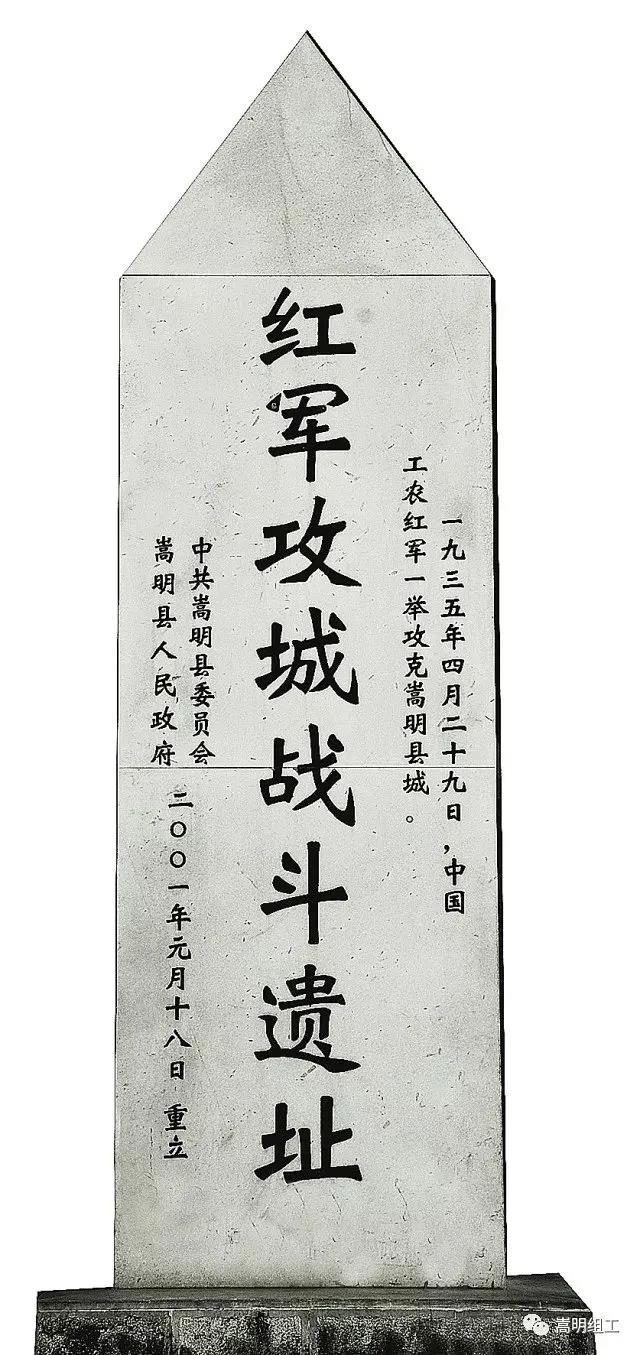 一九三五年四月二十九日,中国
工农红军一举攻克嵩明县城。
红军攻城战斗遗址
中共嵩明县委员会
嵩明县人民政府
二〇〇一年元月十八日 重立
嵩明组工